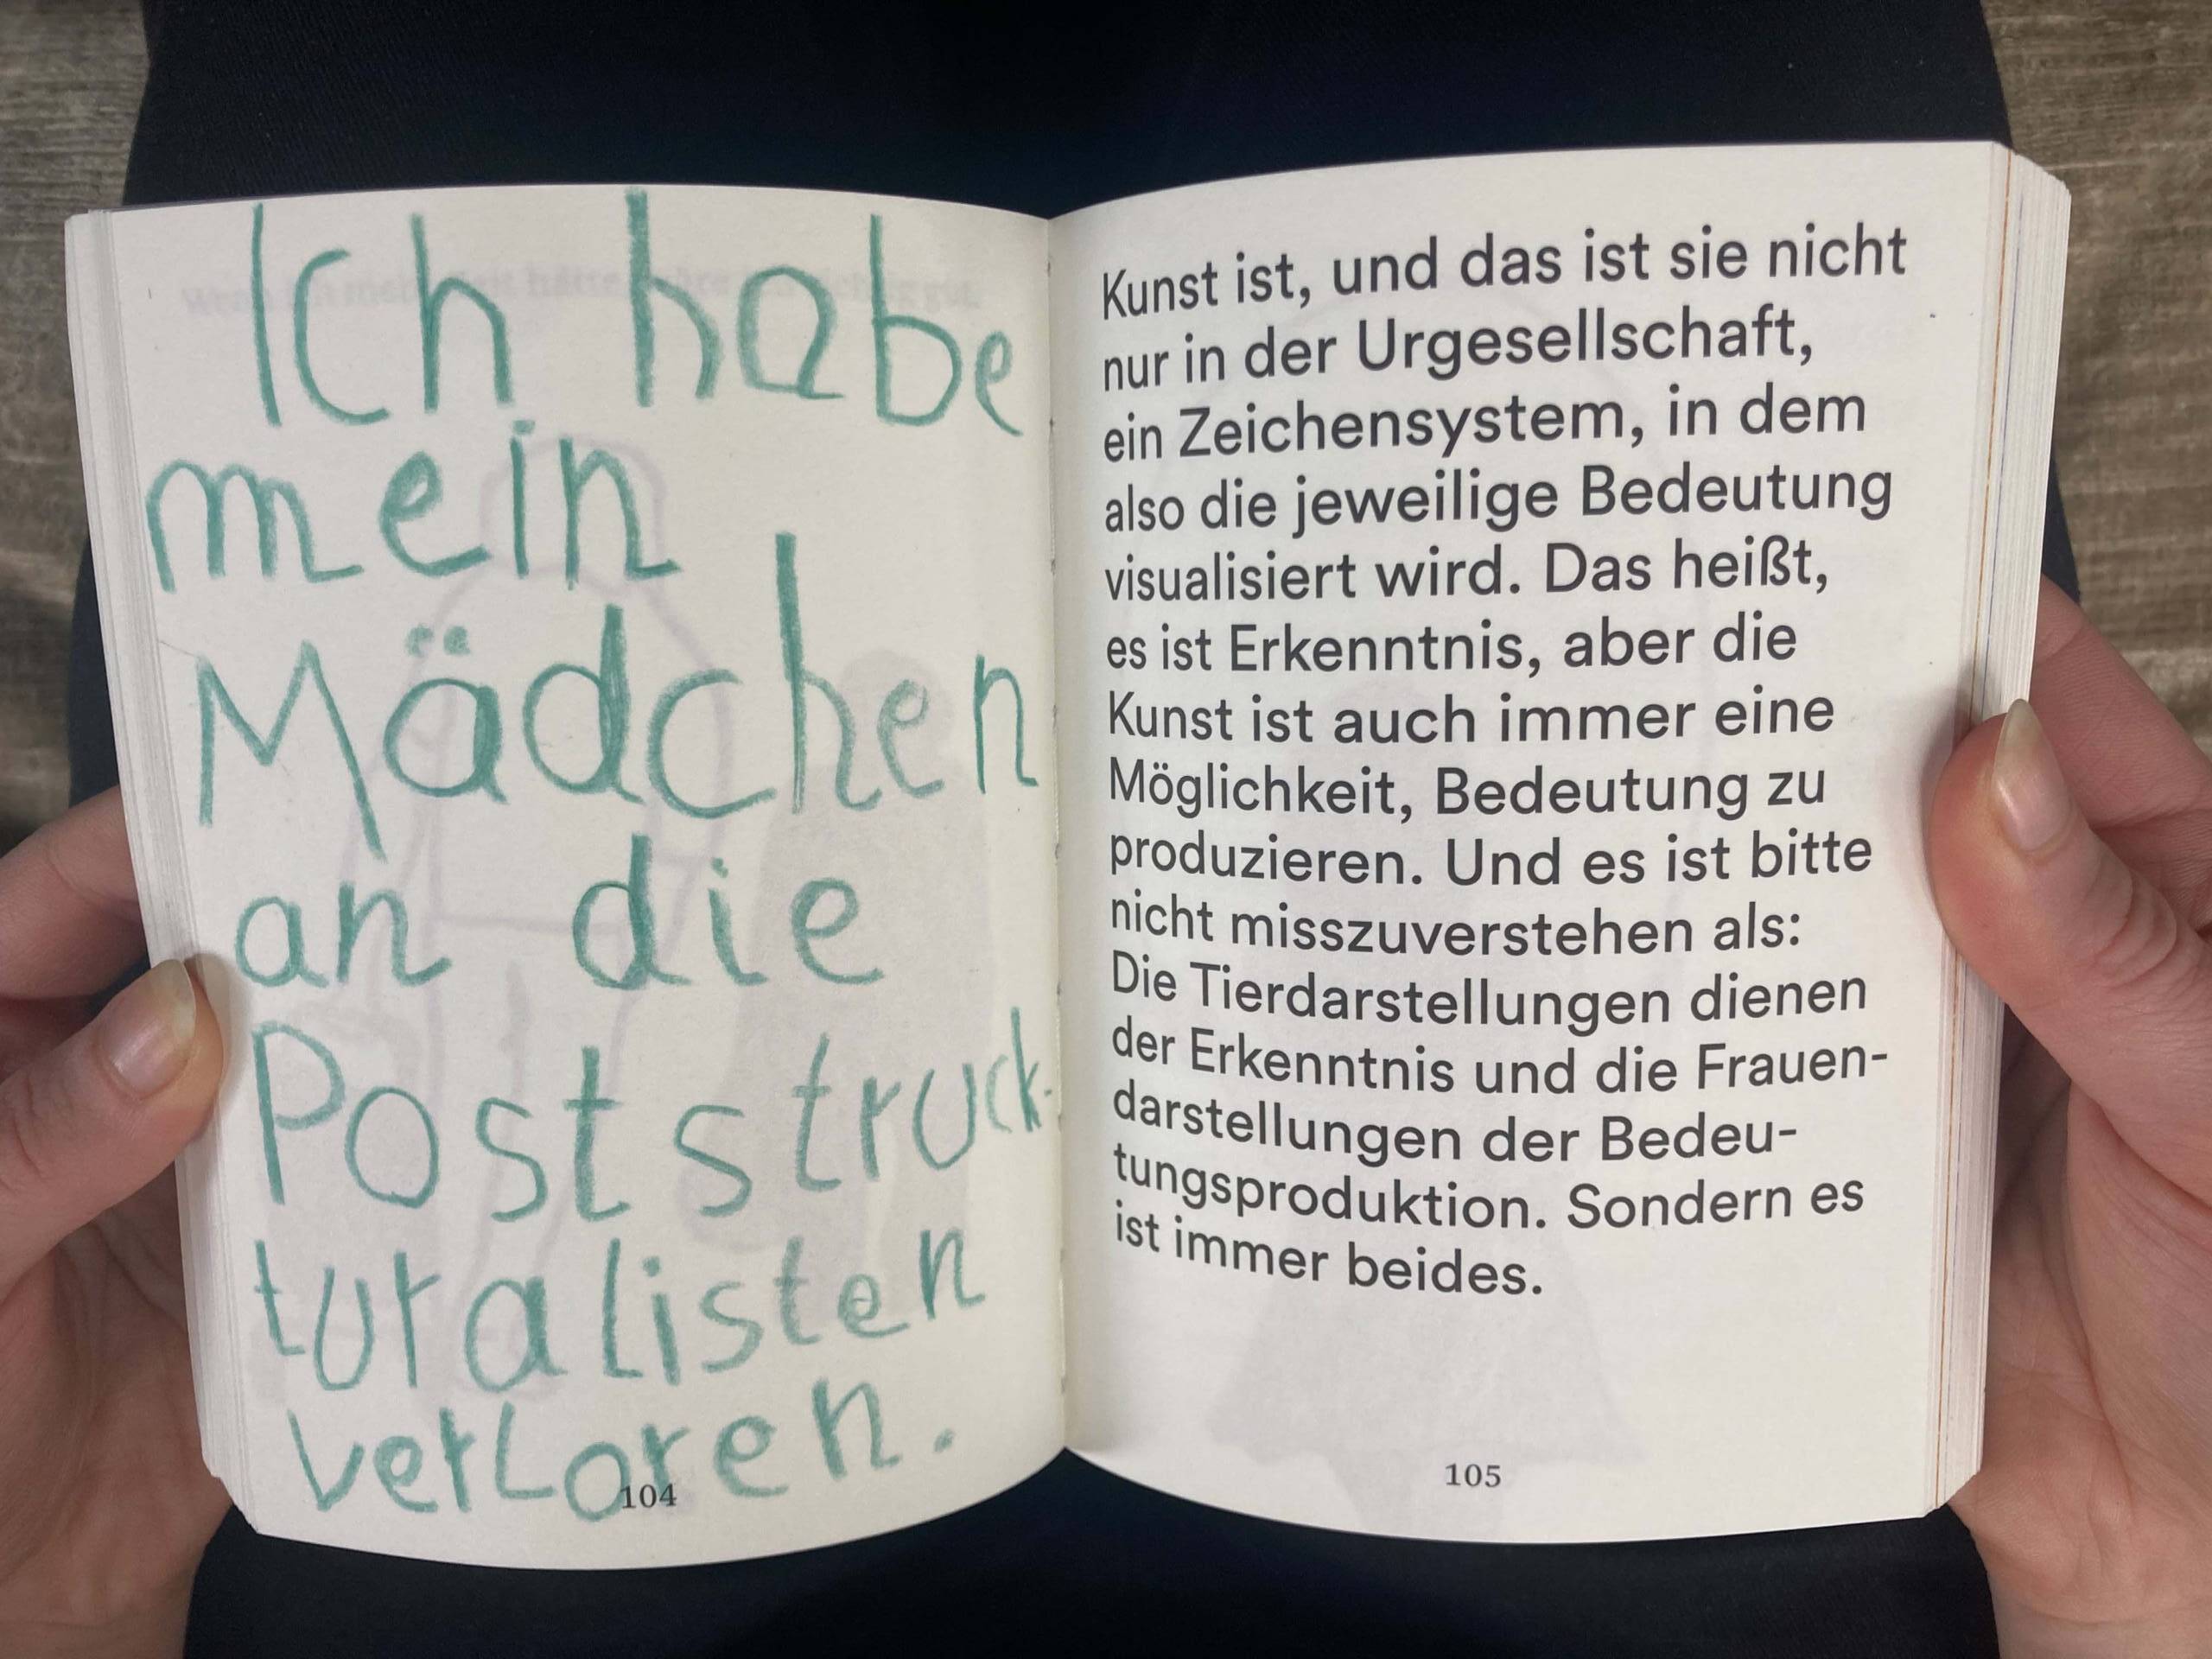 Ich habe
mein
Mädchen
an die
Poststruck-
turalisten
verLoren.
104
Kunst ist, und das ist sie nicht
nur in der Urgesellschaft,
ein Zeichensystem, in dem
also die jeweilige Bedeutung
visualisiert wird. Das heißt,
es ist Erkenntnis, aber die
Kunst ist auch immer eine
Möglichkeit, Bedeutung zu
produzieren. Und es ist bitte
nicht misszuverstehen als:
Die Tierdarstellungen dienen
der Erkenntnis und die Frauen-
darstellungen der Bedeu-
tungsproduktion. Sondern es
ist immer beides.
105